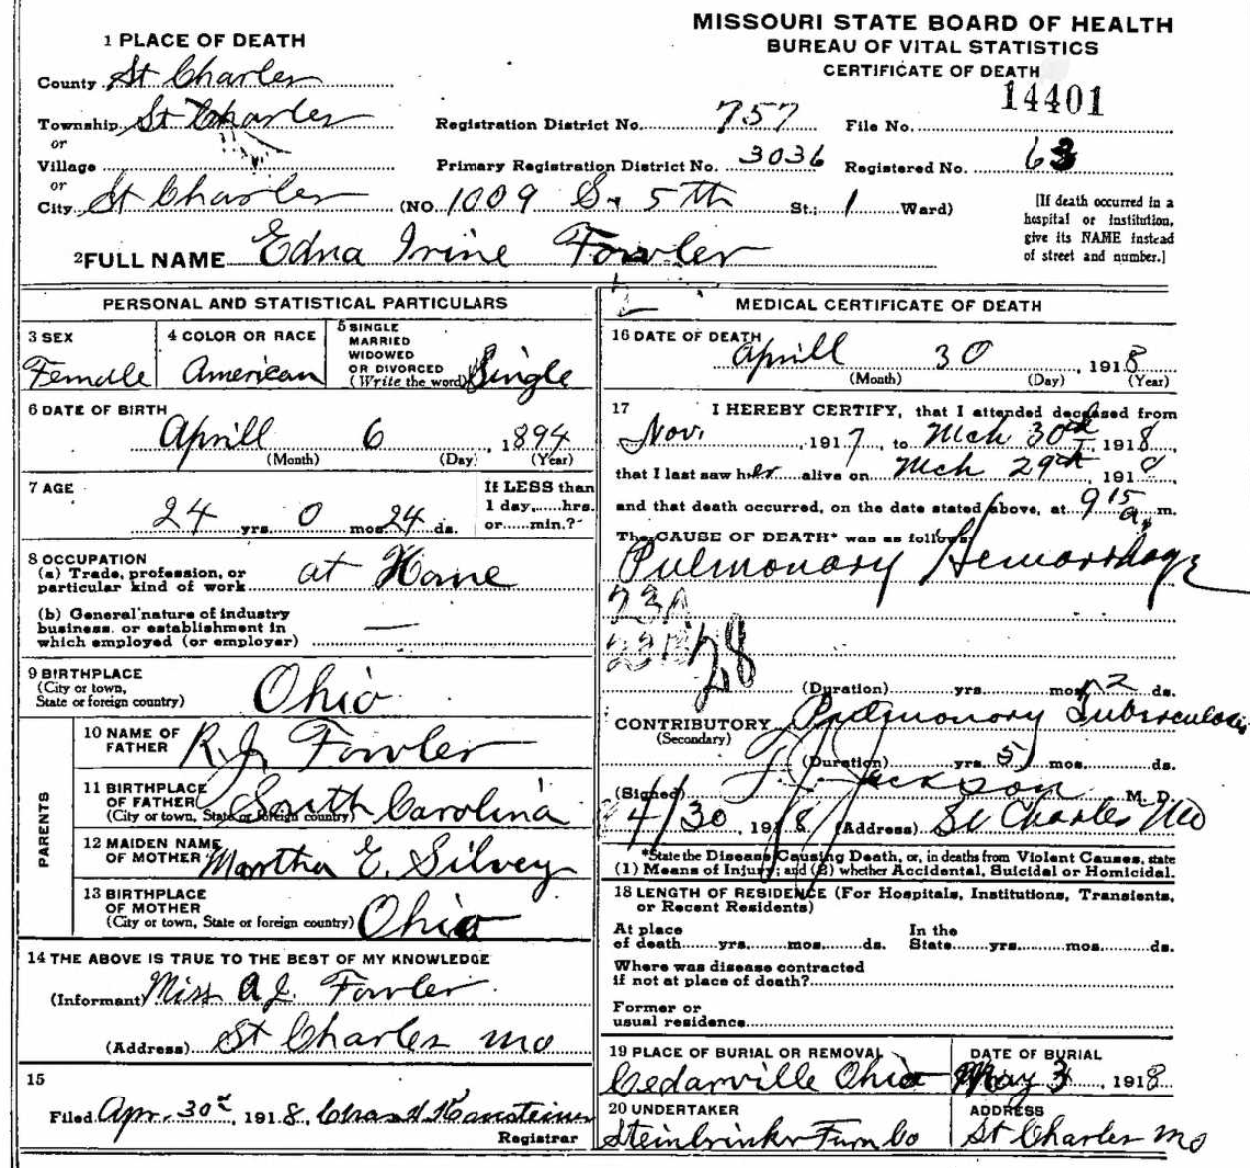 MISSOURI STATE BOARD OF HEALTH
BUREAU OF VITAL STATISTICS
CERTIFICATE OF DEATH
14401
1 PLACE OF DEATH
County St Charles
Township St Charles
or
Village
or
City St Charles (NO. 1009 S. 5th St.; 1 Ward)
Registration District No. 757 File No.
Primary Registration District No. 3036 Registered No. 63
[If death occurred in a
hospital or institution,
give its NAME instead
of street and number.]
2 FULL NAME Edna Irine Fowler
PERSONAL AND STATISTICAL PARTICULARS
3 SEX
Female
4 COLOR OR RACE
American
5 SINGLE
MARRIED
WIDOWED
OR DIVORCED
(Write the word) Single
6 DATE OF BIRTH
Aprill 6, 1894
(Month) (Day) (Year)
7 AGE
24 yrs. 0 mos. 24 ds.
If LESS than
1 day,.....hrs.
or.....min.?
8 OCCUPATION
(a) Trade, profession, or
particular kind of work at Home
(b) General nature of industry
business. or establishment in
which employed (or employer) —
9 BIRTHPLACE
(City or town,
State or foreign country) Ohio
PARENTS
10 NAME OF
FATHER R.J. Fowler
11 BIRTHPLACE
OF FATHER
(City or town, State or foreign country) South Carolina
12 MAIDEN NAME
OF MOTHER Martha E. Silvey
13 BIRTHPLACE
OF MOTHER
(City or town, State or foreign country) Ohio
14 THE ABOVE IS TRUE TO THE BEST OF MY KNOWLEDGE
(Informant) Miss A J. Fowler
(Address) St Charles Mo
15
Filed Apr. 30, 1918,
Registrar
MEDICAL CERTIFICATE OF DEATH
16 DATE OF DEATH
Aprill 30, 1918
(Month) (Day) (Year)
17 I HEREBY CERTIFY, that I attended deceased from
Nov., 1917, to Mch 30, 1918
that I last saw her alive on Mch 29th, 1918,
and that death occurred, on the date stated above, at 9 15 a. m.
The CAUSE OF DEATH* was as follows:
Pulmonary Hemorrhage
23A
28
(Duration) yrs. mos. 2 ds.
CONTRIBUTORY Pulmonary Tuberculosis
(Secondary)
(Duration) yrs. 5 mos. ds.
(Signed) Jackson M. D.
4/30, 1918 (Address) St Charles Mo
*State the Disease Causing Death, or, in deaths from Violent Causes, state
(1) Means of Injury; and (2) whether Accidental, Suicidal or Homicidal.
18 LENGTH OF RESIDENCE (For Hospitals, Institutions, Transients,
or Recent Residents)
At place
of death.......yrs.......mos.......ds.
In the
State.......yrs.......mos.......ds.
Where was disease contracted
if not at place of death?
Former or
usual residence
19 PLACE OF BURIAL OR REMOVAL
Cedarville Ohio
DATE OF BURIAL
May 3, 1918
20 UNDERTAKER
Steinbrinker Furn Co
ADDRESS
St Charles Mo